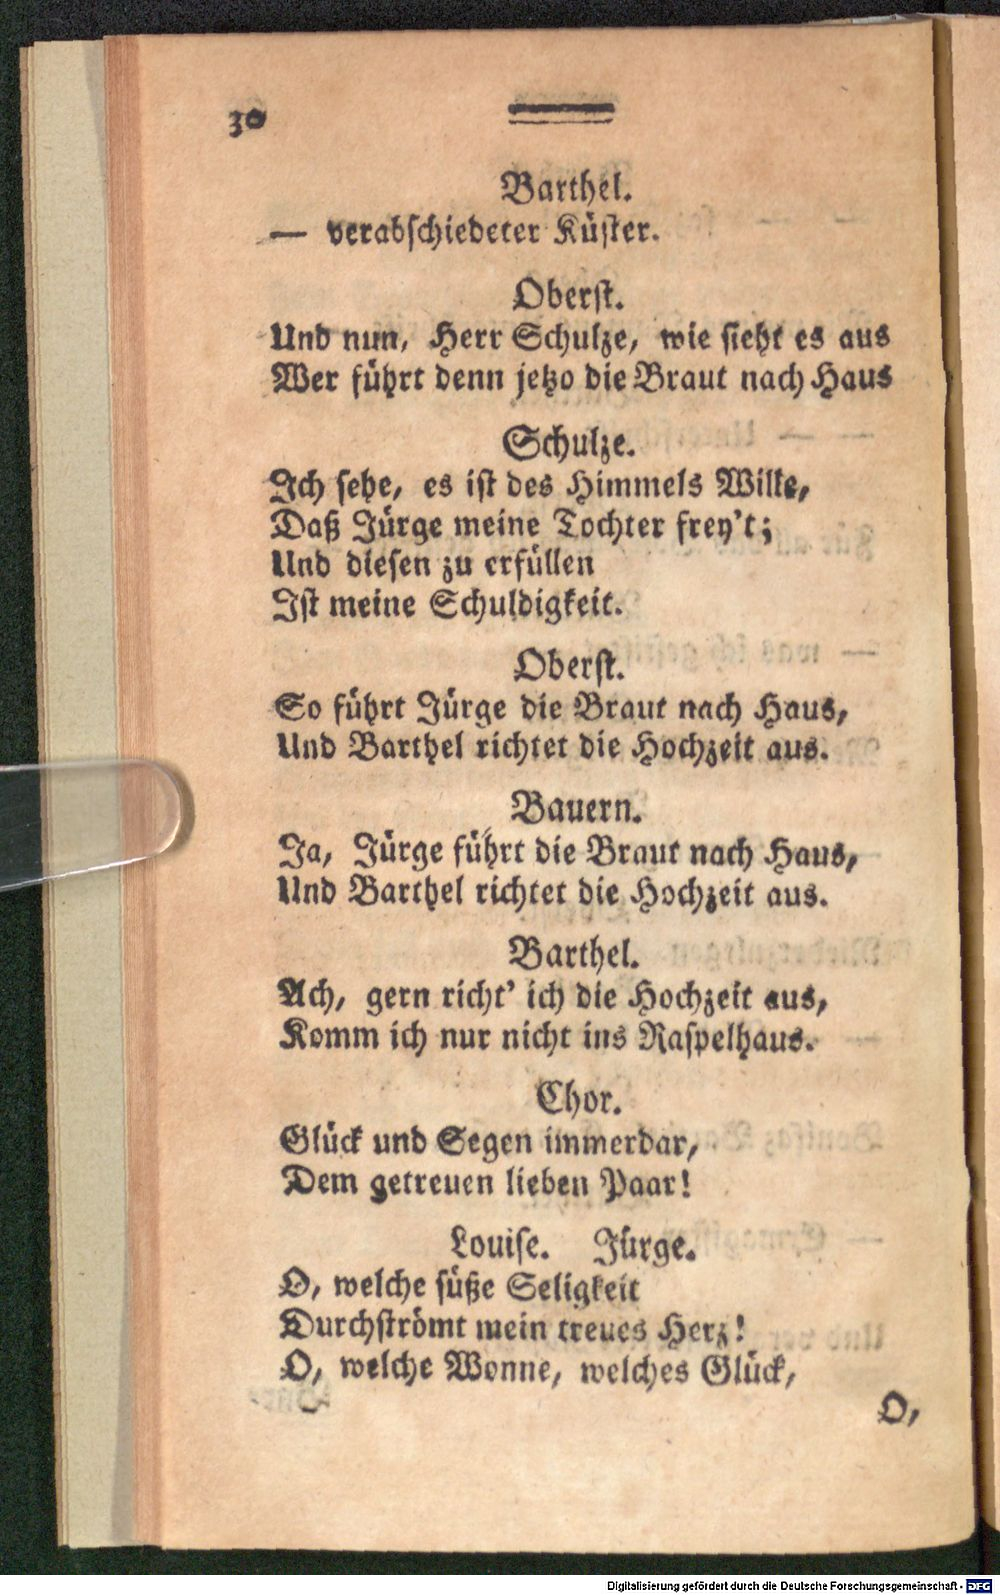 30
Barthel.
— verabschiedeter Küster.
Oberst.
Und nun, Herr Schulze, wie sieht es aus
Wer führt denn jetzo die Braut nach Haus
Schulze.
Ich sehe, es ist des Himmels Wille,
Daß Jürge meine Tochter frey't;
Und diesen zu erfüllen
Ist meine Schuldigkeit.
Oberst.
So führt Jürge die Braut nach Haus,
Und Barthel richtet die Hochzeit aus.
Bauern.
Ja, Jürge führt die Braut nach Haus,
Und Barthel richtet die Hochzeit aus.
Barthel.
Ach, gern richt' ich die Hochzeit aus,
Komm ich nur nicht ins Raspelhaus.
Chor.
Glück und Segen immerdar,
Dem getreuen lieben Paar!
Louise. Jürge.
O, welche süße Seligkeit
Durchströmt mein treues Herz!
O, welche Wonne, welches Glück,
O,
Digitalisierung gefördert durch die Deutsche Forschungsgemeinschaft - DFG